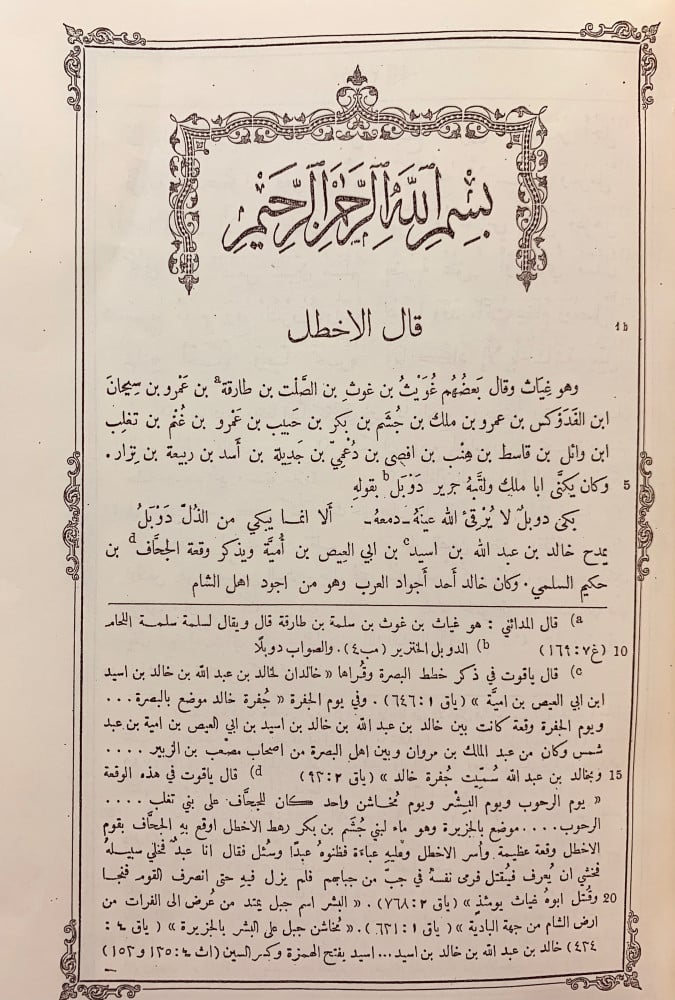 بِسْمِ اللهِ الرَّحْمٰنِ الرَّحِيْمِ
قال الاخطل
1b
وهو غِيَاث وقال بَعضُهُم غُوَيْثُ بن غوثِ بن الصَّلْت بن طارقة a بن عَمْرو بن سِيحانَ
ابن الفَدَوْكس بن عمرو بن ملك بن جُشَم بن بكر بن حَبيب بن عَمْرو بن غُنْم بن تغلِب
ابن وائل بن قاسط بن هِنْب بن افصى بن دُعْمِيّ بن جَدِيلة بن أَسد بن ربيعة بن نِزار .
5 وكان يكنَّى ابا ملك ولقَّبَهُ جرير دَوْبَل b بقولِهِ
بكى دوبلٌ لا يُرْقِئُ الله عينَهُ ـ دمعهُ ـ ألا انما يبكي من الذُلّ دَوْبَلُ
يمدح خالد بن عبد الله بن اسيد c بن ابي العِيص بن أُميَّة ويذكر وقعة الجحَّاف d بن
حكيم السلمي . وكان خالد أحد أجواد العرب وهو من اجود اهل الشام
a) قال المدائني : هو غياث بن غوث بن سلمة بن طارقة قال ويقال لسلمة سلمة اللحام
10 (غ ٧ : ١٦٩) b) الدوبل الخنزير (مب ٤) . والصواب دوبلًا
c) قال ياقوت في ذكر خطط البصرة وقُراها « خالدان لخالد بن عبد الله بن خالد بن اسيد
ابن ابي العيص بن اميَّة » (ياق ١ : ٦٤٦) . وفي يوم الجفرة « جُفرة خالد موضع بالبصرة . . .
ويوم الجفرة وقعة كانت بين خالد بن عبد الله بن خالد بن اسيد بن ابي العيص بن امية بن عبد
شمس وكان من عبد الملك بن مروان وبين اهل البصرة من اصحاب مصعب بن الزبير . . . .
15 وبخالد بن عبد الله سُمّيت جُفرة خالد » (ياق ٢ : ٩٢) d) قال ياقوت في هذه الوقعة
« يوم الرحوب ويوم البِشْر ويوم مُخاشن واحد كان للجحَّاف على بني تغلب . . . .
الرحوب . . . . موضع بالجزيرة وهو ماء لبني جُشَم بن بكر رهط الاخطل اوقع به الجحَّاف بقوم
الاخطل وقعة عظيمة وأُسر الاخطل وعليهِ عباءة فظنوهُ عبدًا وسُئل فقال انا عبدٌ فخلي سبيلهُ
فخشي ان يُعرف فيُقتل فرمى نفسهُ في جبّ من جبابهم فلم يزل فيهِ حتى انصرف القوم فنجا
20 وقُتل ابوهُ غياث يومئذٍ » (ياق ٢ : ٧٦٨) . « البشر اسم جبل يمتد من عُرض الى الفرات من
ارض الشام من جهة البادية » (ياق ١ : ٦٣١) . « مُخاشن جبل على البشر بالجزيرة » (ياق ٤ :
٤٣٤) خالد بن عبد الله بن خالد بن اسيد ... اسيد بفتح الهمزة وكسر السين (اث ٤ : ١٢٥ و ١٥٢)